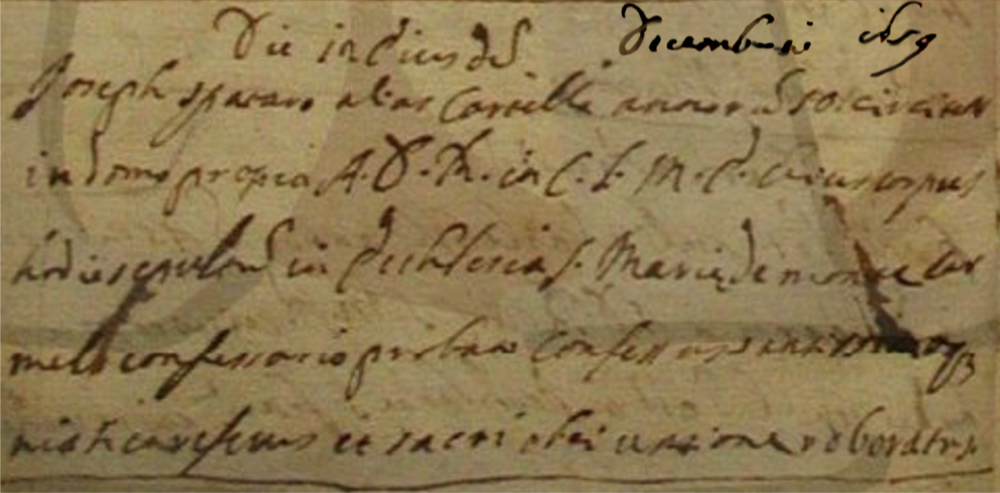 Die in eiusdẽ Decembris 1659
Joseph spataro alias Corrella annor. 50 circiter
in domo propria A. D. R. in C. S. M. E. cuius corpus
hodie sepult in Ecchlesia S. Marie de monte Car
melo confessario probato confessus
viatico refectus et sacri olei unzione roboratus